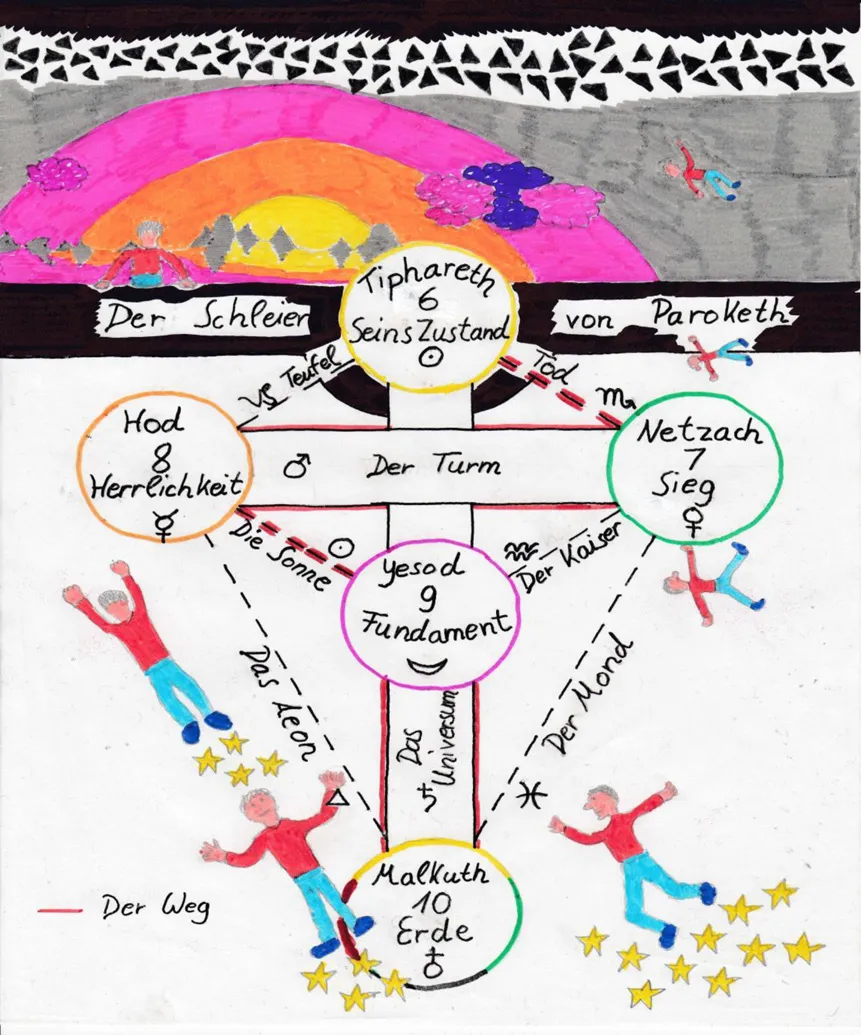 Tiphareth
6
Seins Zustand
☉
Der Schleier
von Paroketh
Teufel
Tod
♏
Hod
8
Herrlichkeit
☿
♂ Der Turm
Netzach
7
Sieg
♀
Die Sonne
☉
Yesod
9
Fundament
♒
Der Kaiser
Das Aeon
△
Das
Universum
♄
Der Mond
♓
Malkuth
10
Erde
♁
Der Weg